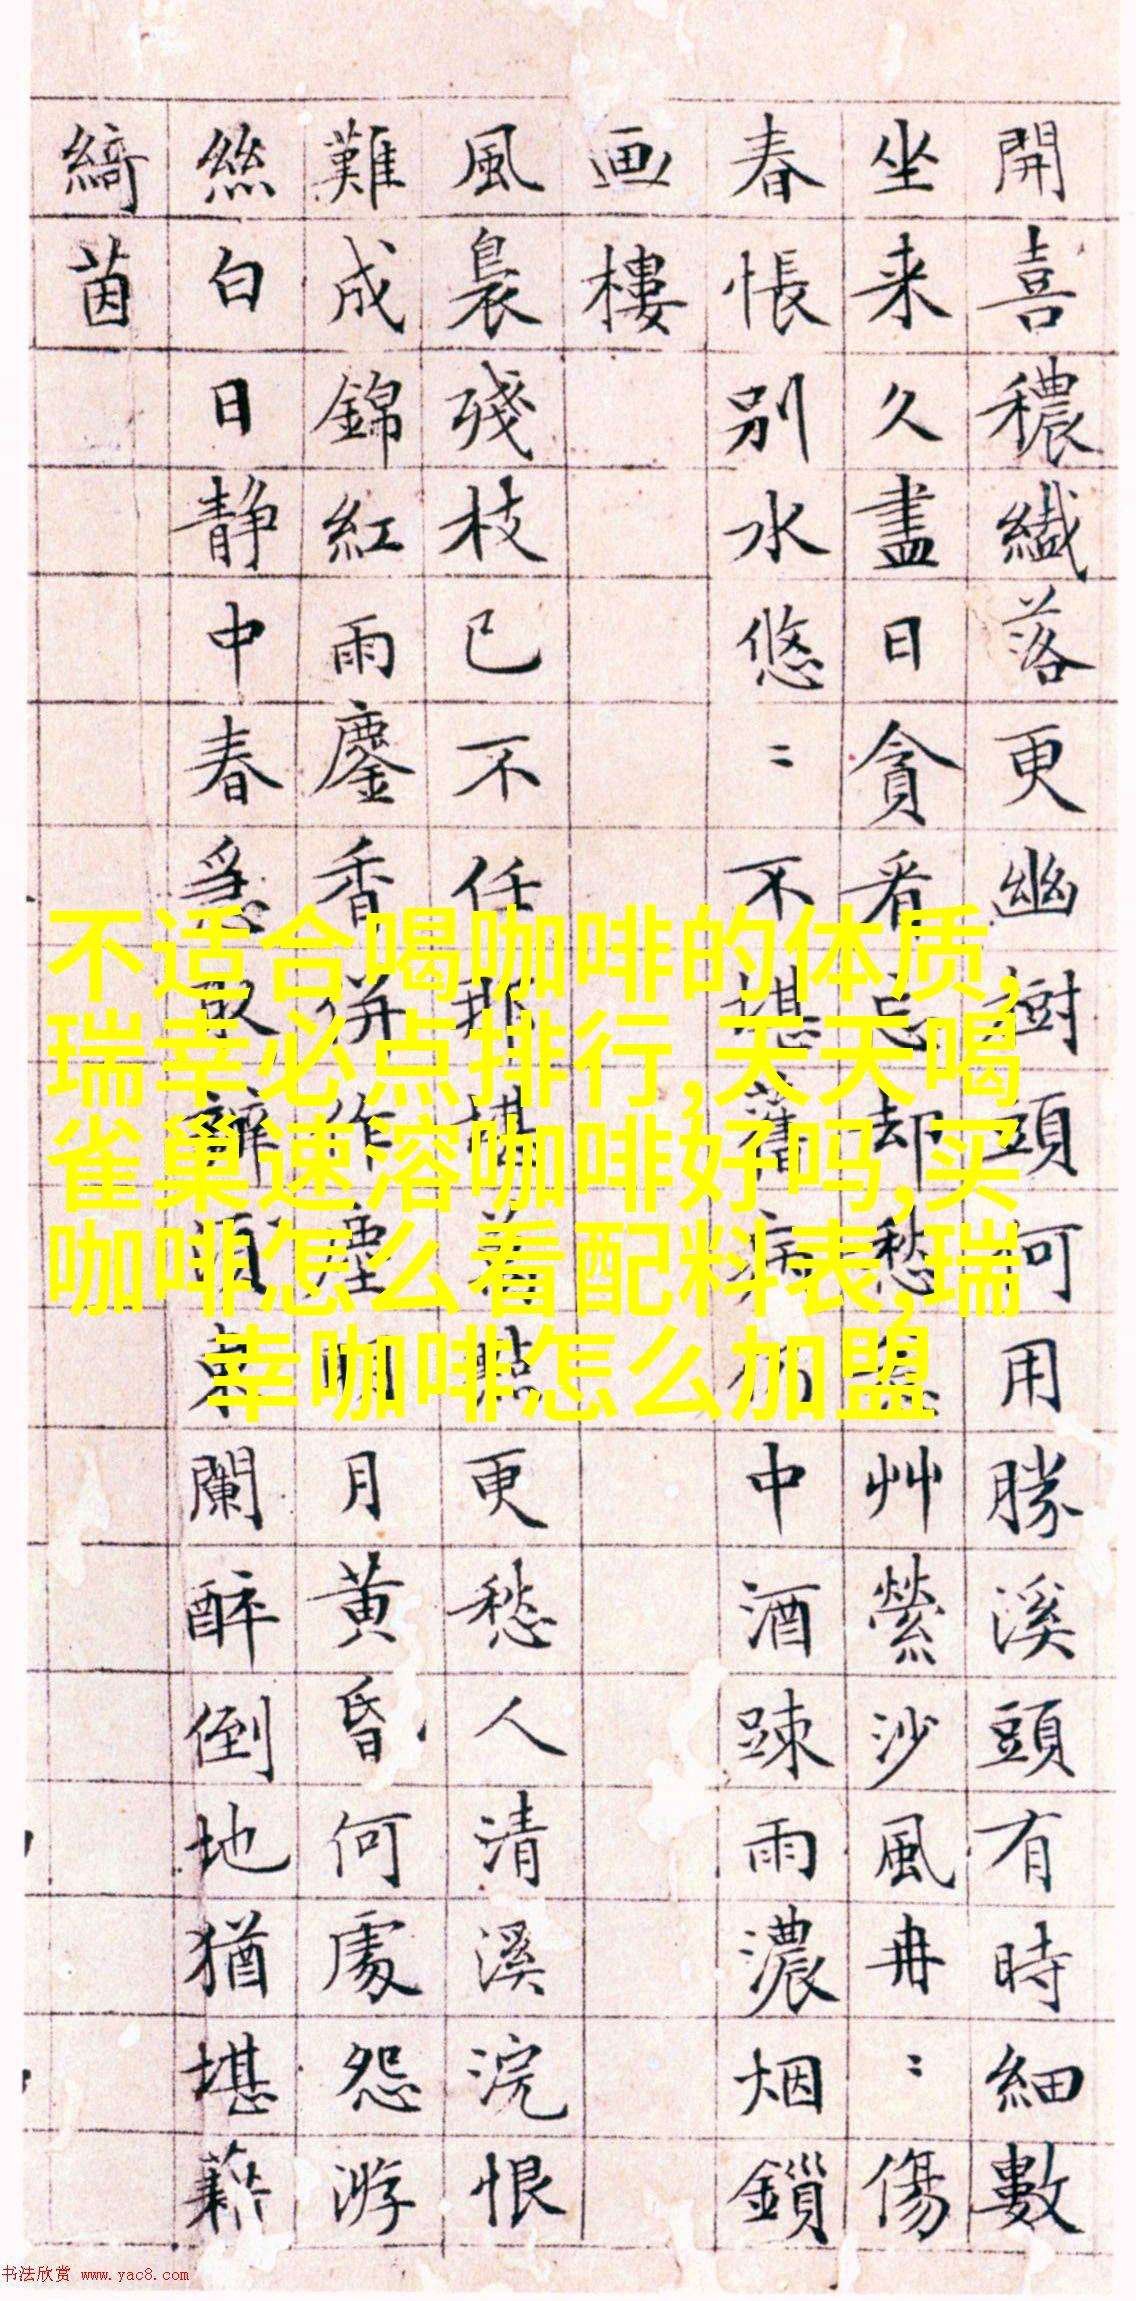 開喜穠纎落更幽樹頭何用勝溪頭有時細數
坐来久盡日貪看忘却愁艸縈沙風冉〻傷
春悵別水悠〻不堪舊病仍中酒踈雨濃烟鎖
画樓
風裊殘枝已不任那堪着點更愁人清溪浣恨
難成錦紅雨鏖香併作塵明月黄昏何處怨游
絲白日静中春須東闌醉倒地猶堪藉
綺茵
不适合喝咖啡的体质,
瑞幸必点排行,天天喝
雀巢速溶咖啡好吗,买
咖啡怎么看配料表,瑞
幸咖啡怎么加盟
书法欣赏 www.yac8.com